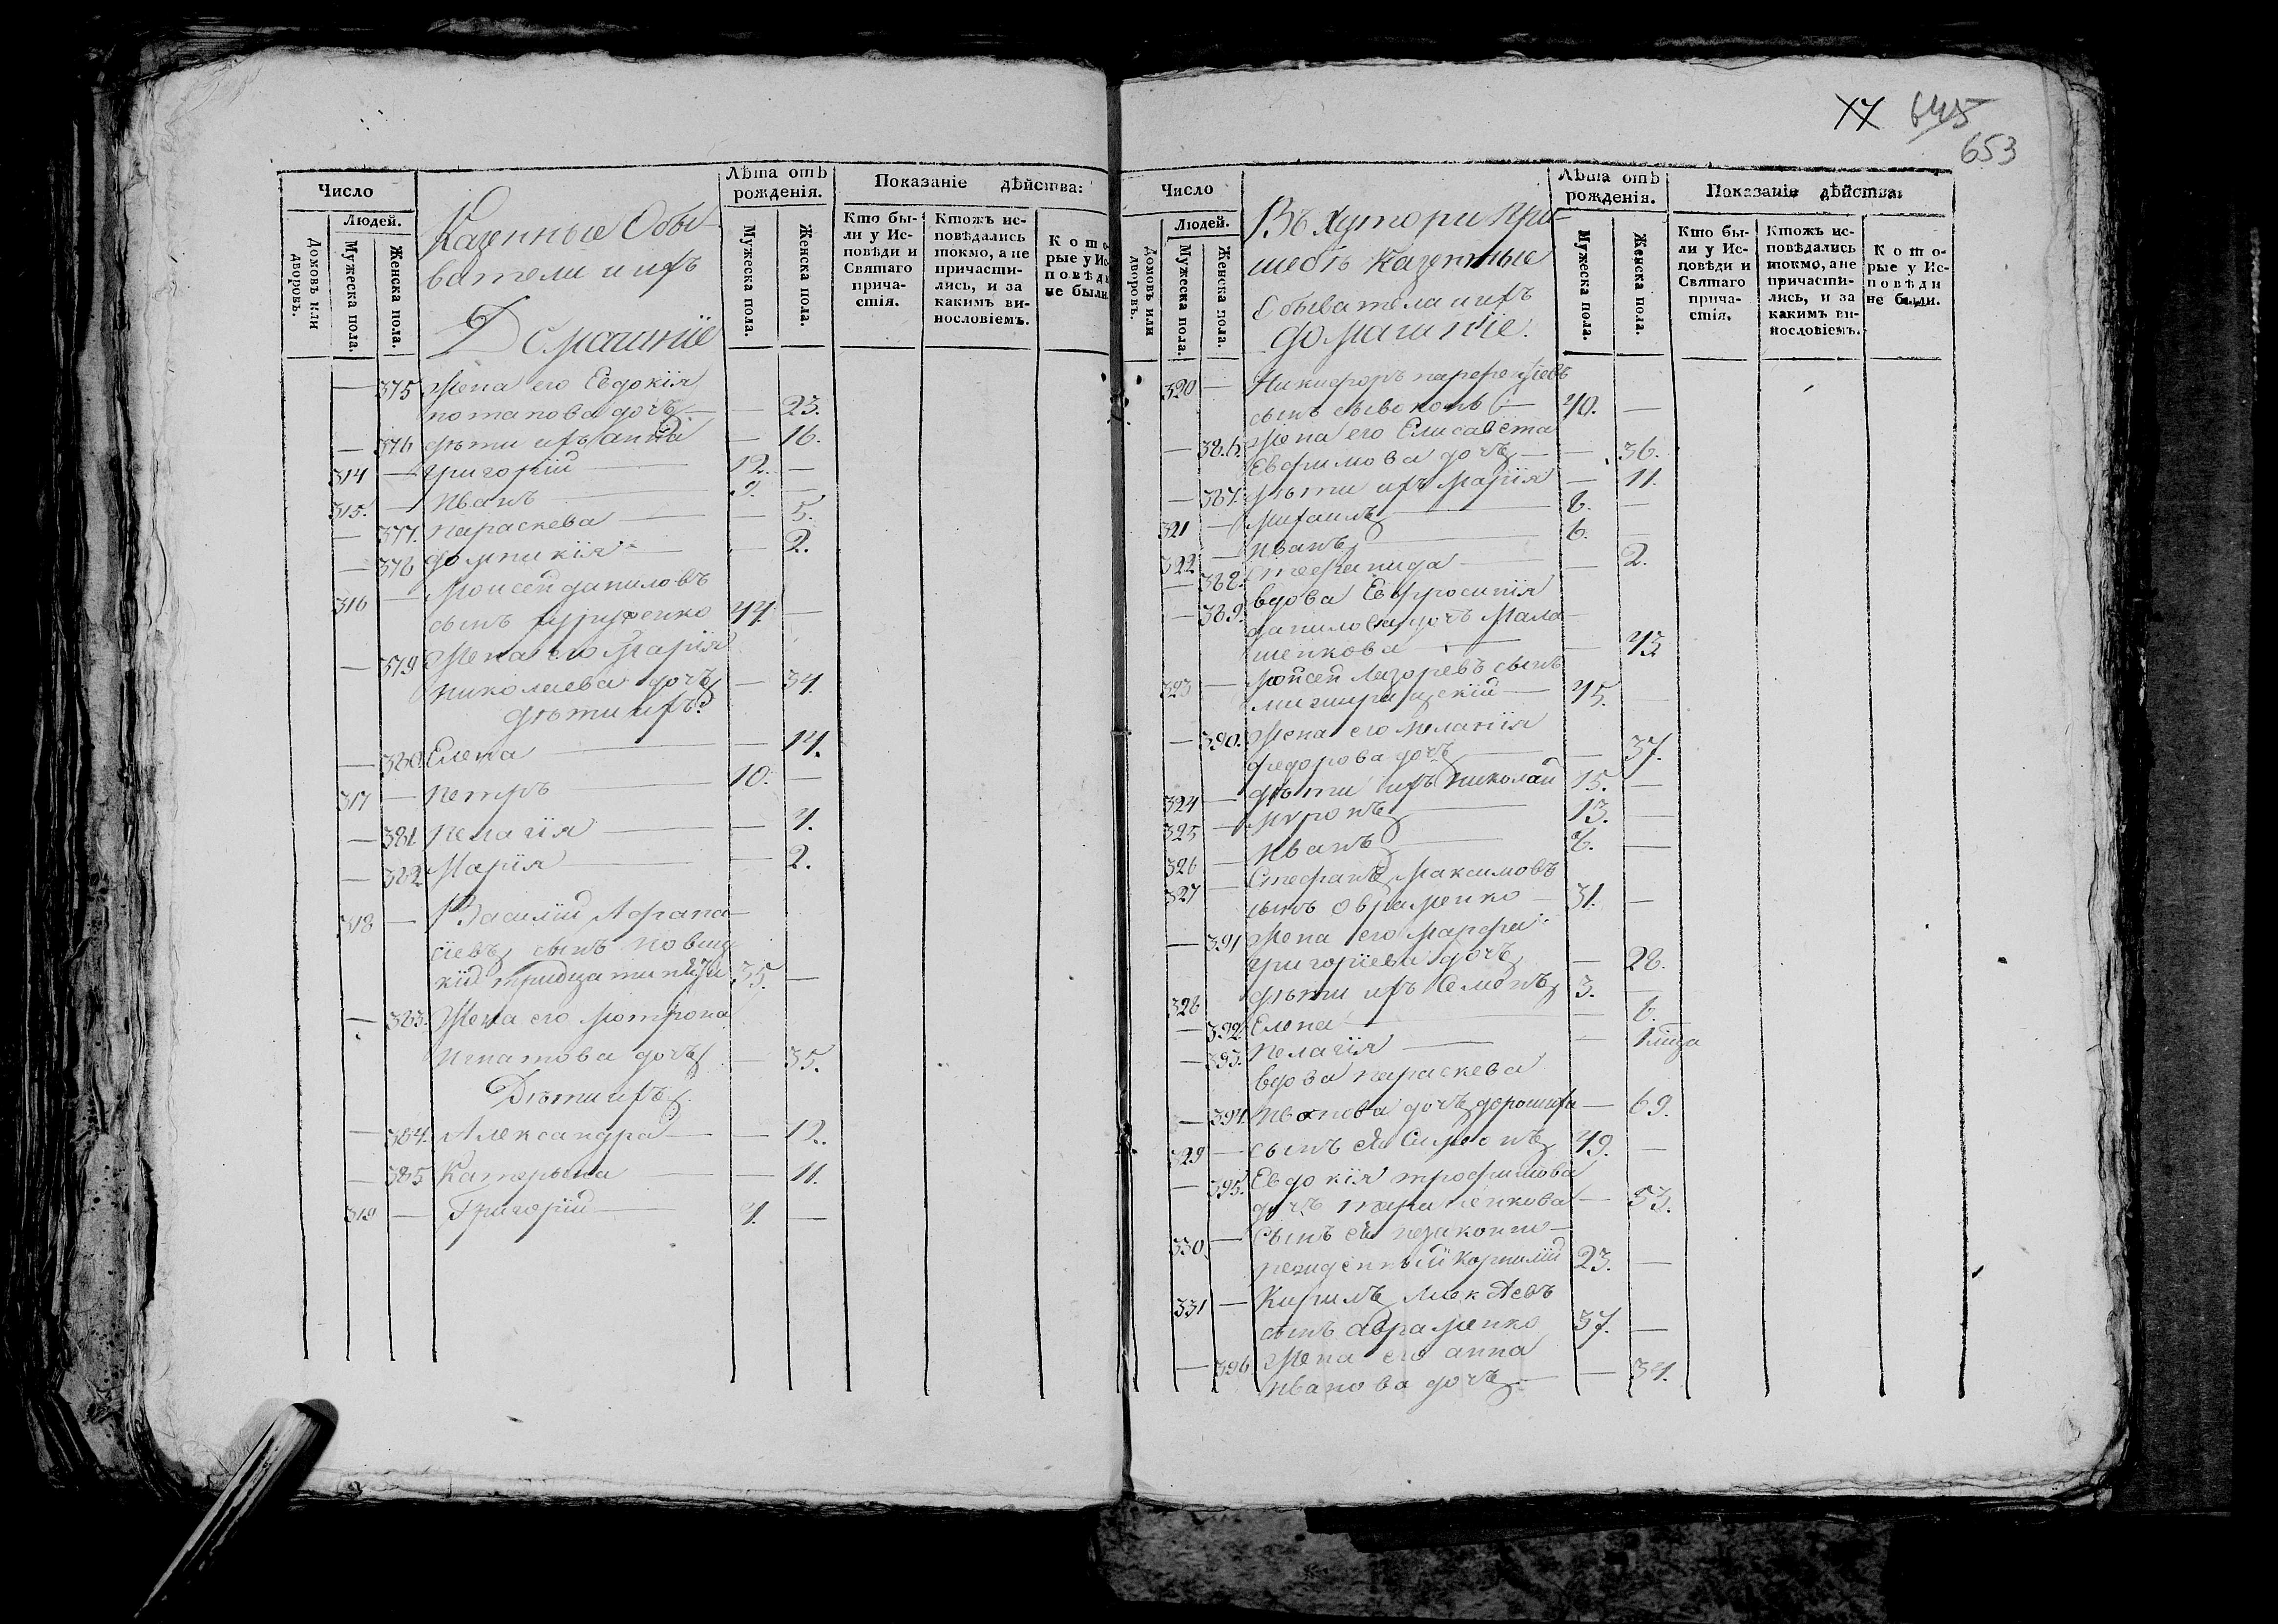 Число
Людей.
Домовъ или дворовъ.
Мужеска пола.
Женска пола.
Казенные Обы-
ватели и ихъ
Домашнїе
Лѣта отъ рожденія.
Мужеска пола.
Женска пола.
Показаніе дѣйства:
Кто бы-
ли у Ис-
повѣди и
Святаго
прича-
стія.
Ктожъ ис-
повѣдались
токмо, а не
причасти-
лись, и за
какимъ ви-
нословіемъ.
Кото-
рые у Ис-
повѣди
не были.
— 375 Жена его Евдокїя
потапова дочь — — 23.
— 376 дѣти ихъ анна — 16.
314 — григорїй — 12. —
315. — Иванъ — 9. —
— 377. параскева — — 5.
— 378 домникїя — — 2.
316 — Моисей даниловъ
сынъ 44. —
— 379 Жена его Марїя
николаева дочь — 34.
дѣти ихъ:
— 380 Елена — — 14.
317 — петръ — 10. —
— 381 пелагїя — — 4.
— 382 Марїя — — 2.
318 — Василїй Афана-
сїевъ сынъ
кїй 35. —
— 383. Жена его мотрона
Игнатова дочь — 35.
Дѣти ихъ
— 384. Александра — — 12.
— 385 Катерына — — 11.
319 — Григорїй — 4. —
645
653
Число
Людей.
Домовъ или дворовъ.
Мужеска пола.
Женска пола.
Въ Хутори При-
шибъ казенные
Обыватела и ихъ
домашнїе.
Лѣта отъ рожденія.
Мужеска пола.
Женска пола.
Показаніе дѣйства:
Кто бы-
ли у Ис-
повѣди и
Святаго
прича-
стія.
Ктожъ ис-
повѣдались
токмо, а не
причасти-
лись, и за
какимъ ви-
нословіемъ.
Кото-
рые у Ис-
повѣди
не были.
320 — Никифоръ
сынъ 40. —
— 386. Жена его Елисавета
Евфимова дочь — — 36.
— 387. дѣти ихъ марїя — 11.
321 — михаилъ — 8. —
322 — иванъ — 6. —
— 388. Стефанида — — 2.
— 389. вдова Евфросинїя
данилова дочь Мала-
шенкова — — 43
323 — мойсей Лазоревъ сынъ
45. —
— 390. Жена его меланїя
федорова дочь — — 37.
324 — дѣти ихъ николай 15. —
325 — миронъ — 13. —
326 — иванъ — 8. —
327 — Стефанъ Максимовъ
сынъ овраменко — 31. —
— 391 Жена его марфа
григорїева дочь — 28.
328 дѣти ихъ Семенъ 3. —
— 392 Елена — — 6.
— 393. пелагїя — —
вдова параскева
— 394. Иванова дочь — 69.
329 — сынъ ея Симеонъ 49. —
— 395. Евдокїя трофимова
дочь — 53.
330. — Сынъ ея незаконно-
рожденный корнилїй 23. —
331 —
сынъ авраменко 37. —
— 396 Жена его анна
иванова дочь — — 34.